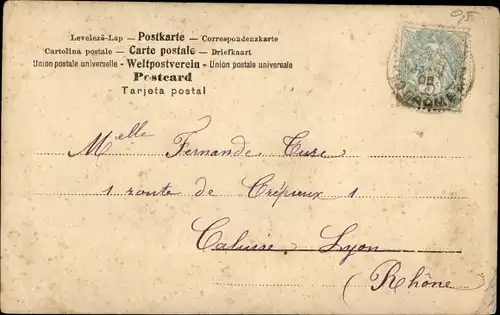 95
Levelező-Lap — Postkarte — Correspondenzkarte
Cartolina postale — Carte postale — Briefkaart
Union postale universelle - Weltpostverein - Union postale universale
Postcard
Tarjeta postal
Melle Fernande Cure
1 route de Crépieux 1
Caluire, Lyon
(Rhône)